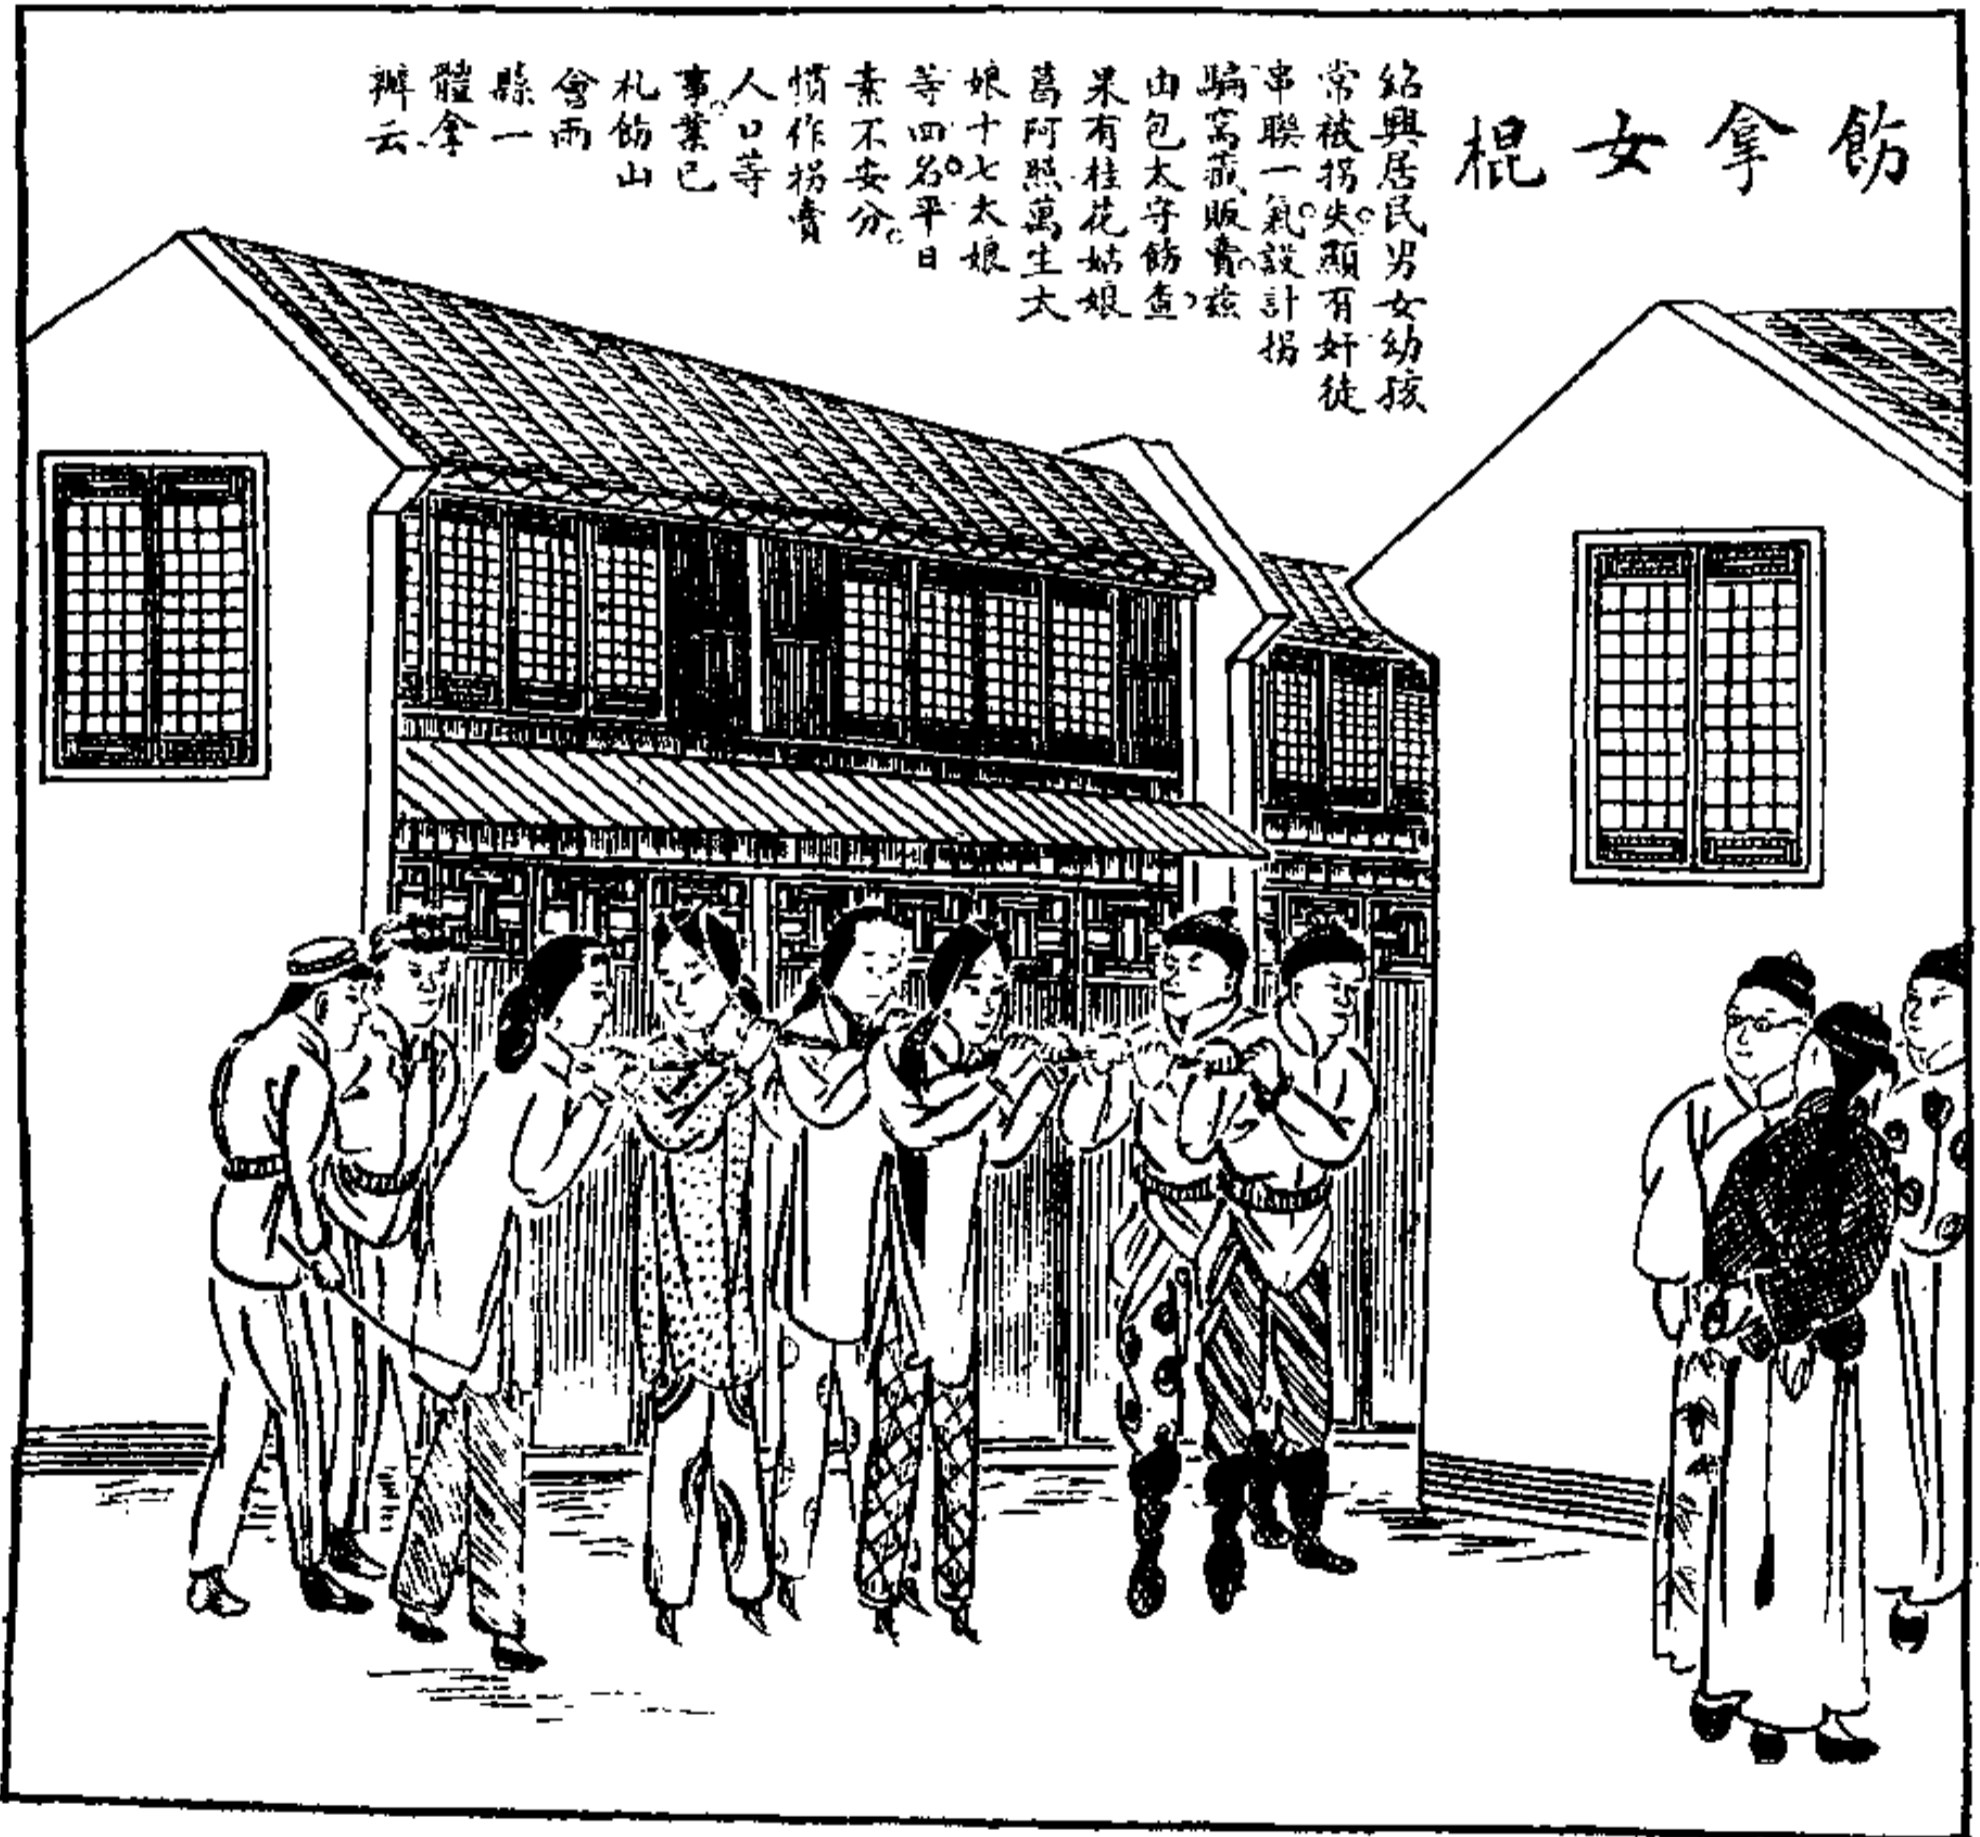 飭拿女棍
紹興居民男女幼孩
常被拐失。顯有奸徒
串聯一氣。設計拐
騙窩藏販賣。茲
由包太守飭查、
果有桂花姑娘
葛阿照萬生太
娘十七太娘
等四名。平日
素不安分。
慣作拐賣
人口等
事。業已
札飭山
會兩
縣一
體拿
辦云